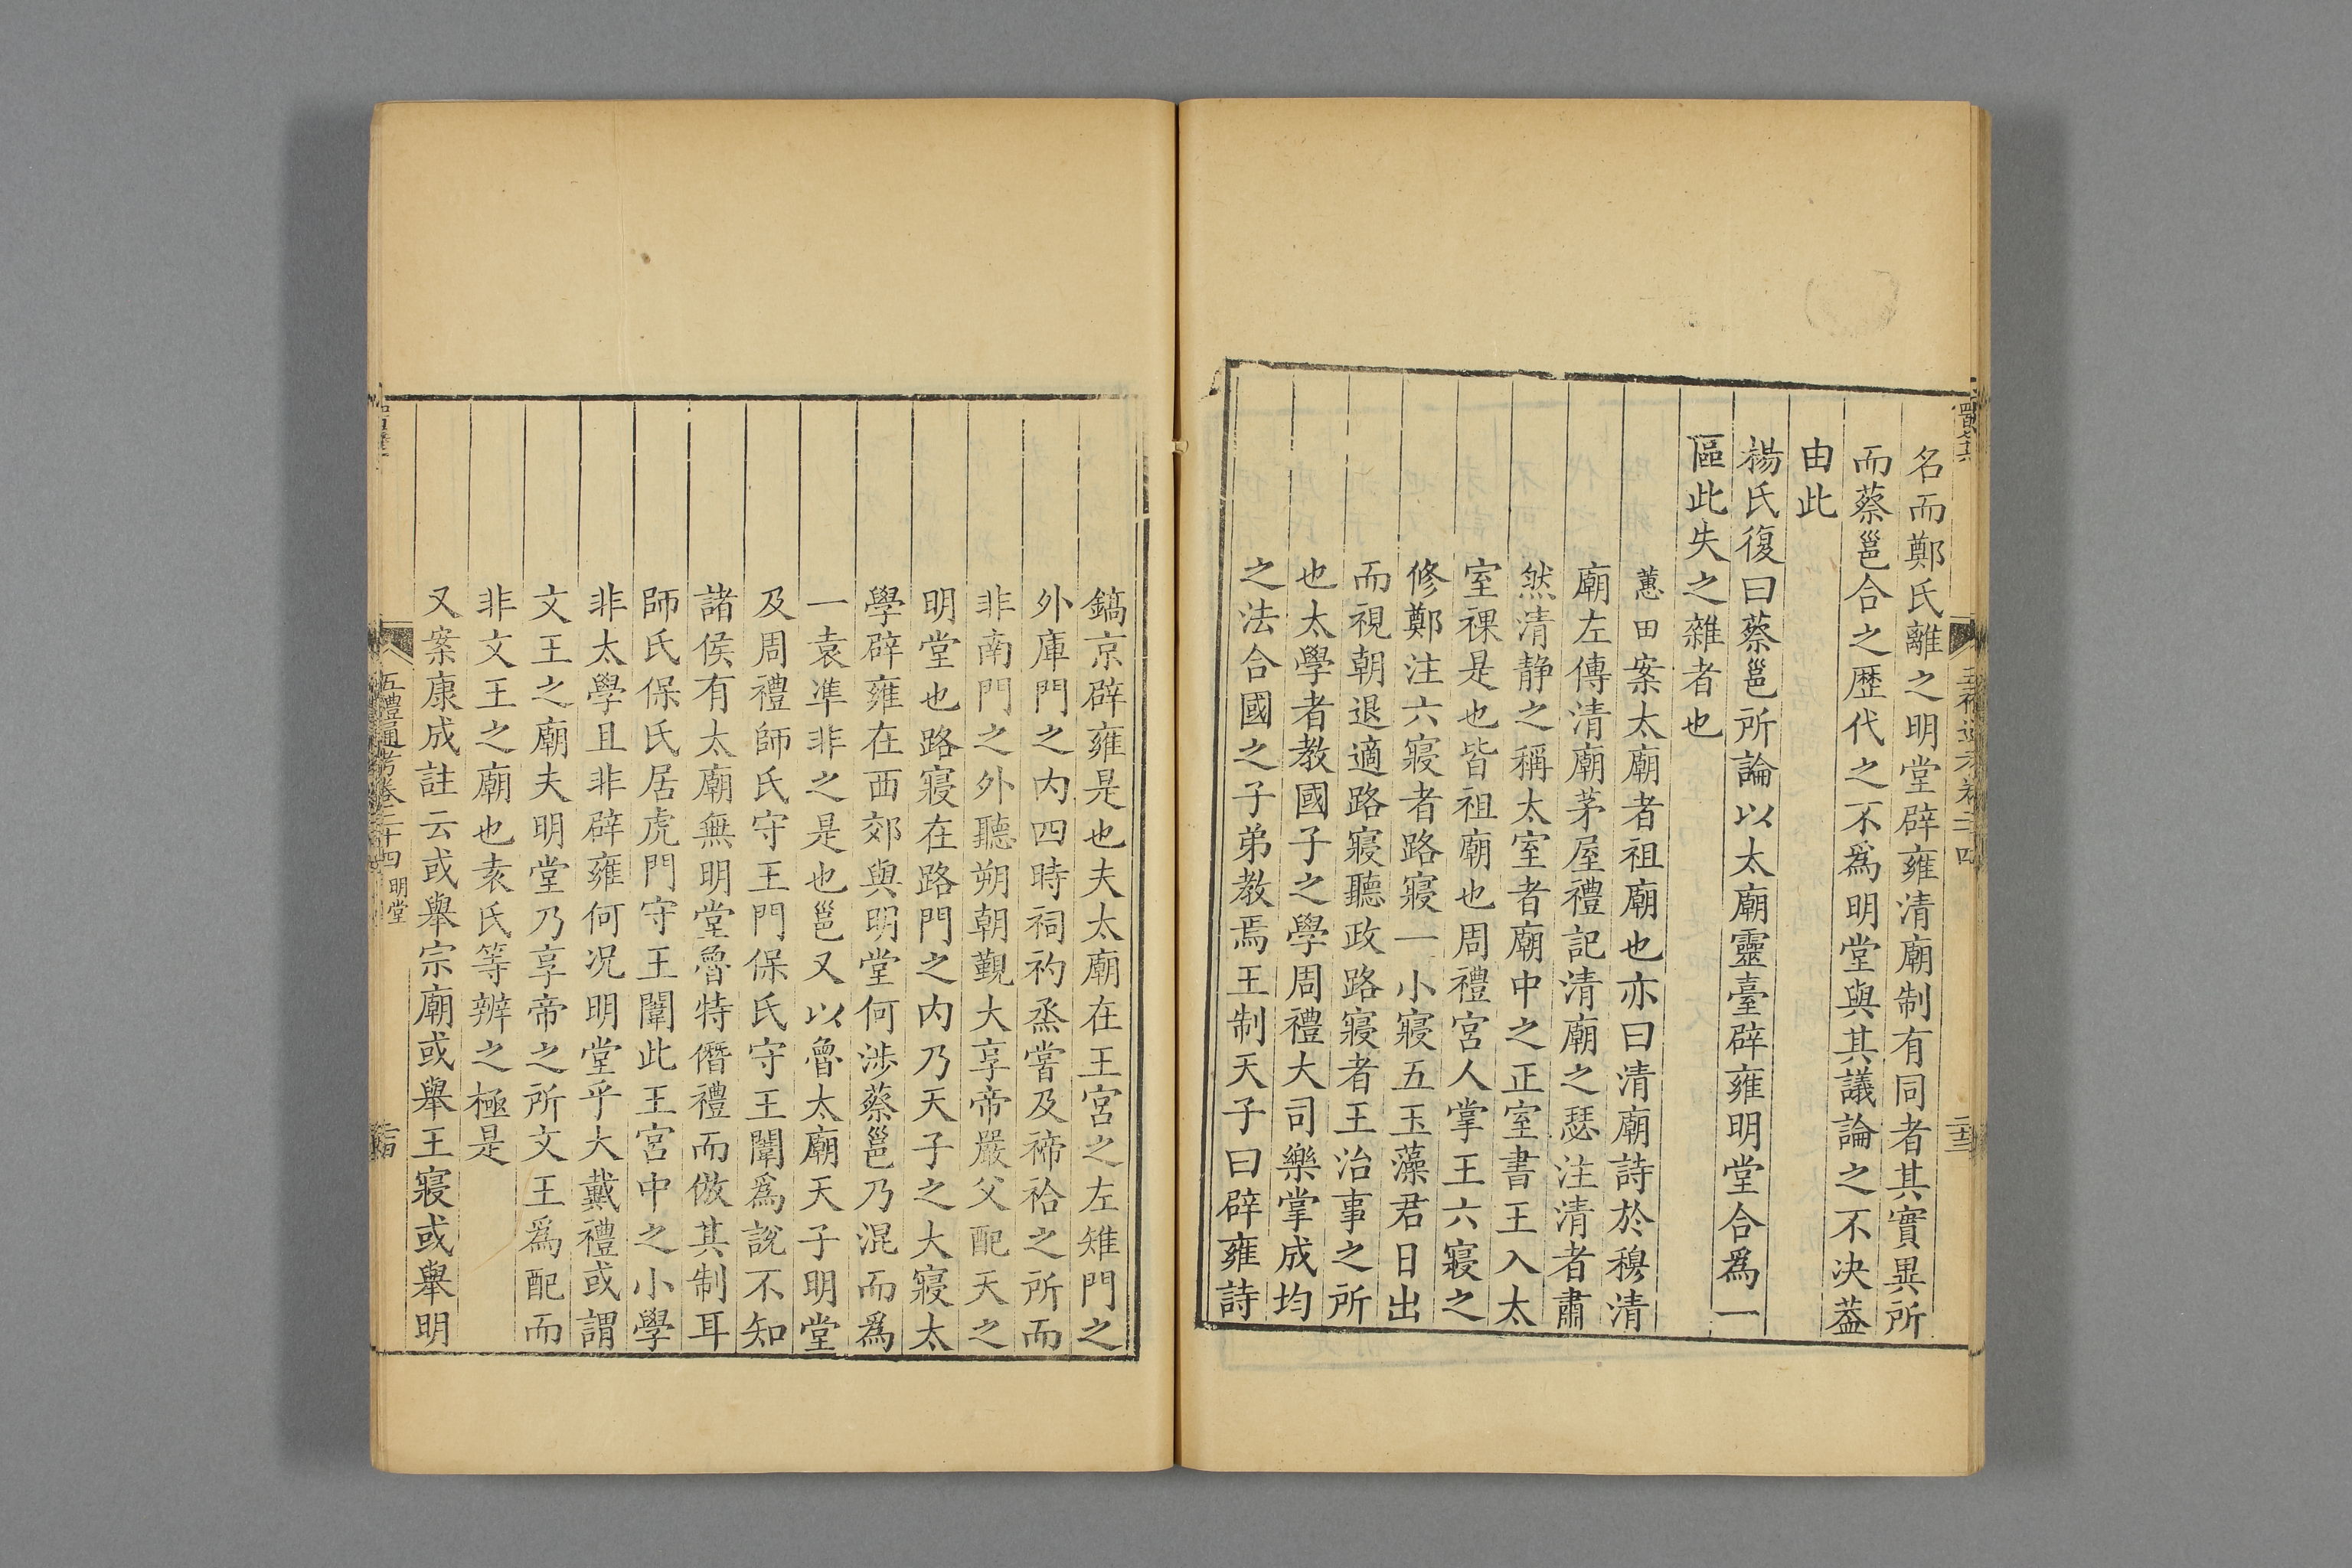 名而鄭氏離之明堂辟雍清廟制有同者其實異所
而蔡邕合之歷代之不爲明堂與其議論之不决葢
由此
楊氏復曰蔡邕所論以太廟靈臺辟雍明堂合爲一
區此失之雜者也
蕙田案太廟者祖廟也亦曰清廟詩於穆清
廟左傳清廟茅屋禮記清廟之瑟注清者肅
然清静之稱太室者廟中之正室書王入太
室祼是也皆祖廟也周禮宮人掌王六寢之
修鄭注六寢者路寢一小寢五玉藻君日出
而視朝退適路寢聽政路寢者王治事之所
也太學者教國子之學周禮大司樂掌成均
之法合國之子弟教焉王制天子曰辟雍詩
鎬京辟雍是也夫太廟在王宮之左雉門之
外庫門之内四時祠礿烝嘗及禘祫之所而
非南門之外聽朔朝覲大享帝嚴父配天之
明堂也路寢在路門之内乃天子之大寢太
學辟雍在西郊與明堂何涉蔡邕乃混而爲
一袁準非之是也邕又以魯太廟天子明堂
及周禮師氏守王門保氏守王闈爲說不知
諸侯有太廟無明堂魯特僭禮而倣其制耳
師氏保氏居虎門守王闈此王宮中之小學
非太學且非辟雍何况明堂乎大戴禮或謂
文王之廟夫明堂乃享帝之所文王爲配而
非文王之廟也袁氏等辨之極是
又案康成註云或舉宗廟或舉王寢或舉明
五禮通考卷二十四 明堂